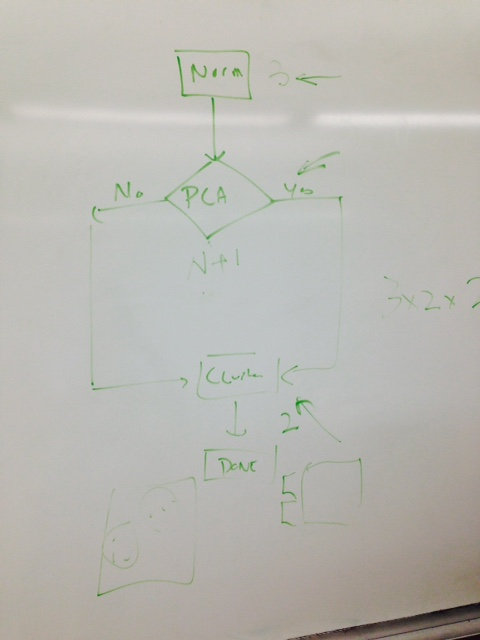 Norm 3
No PCA Yes
N+1
3x2x2
Cluster
2
DONE